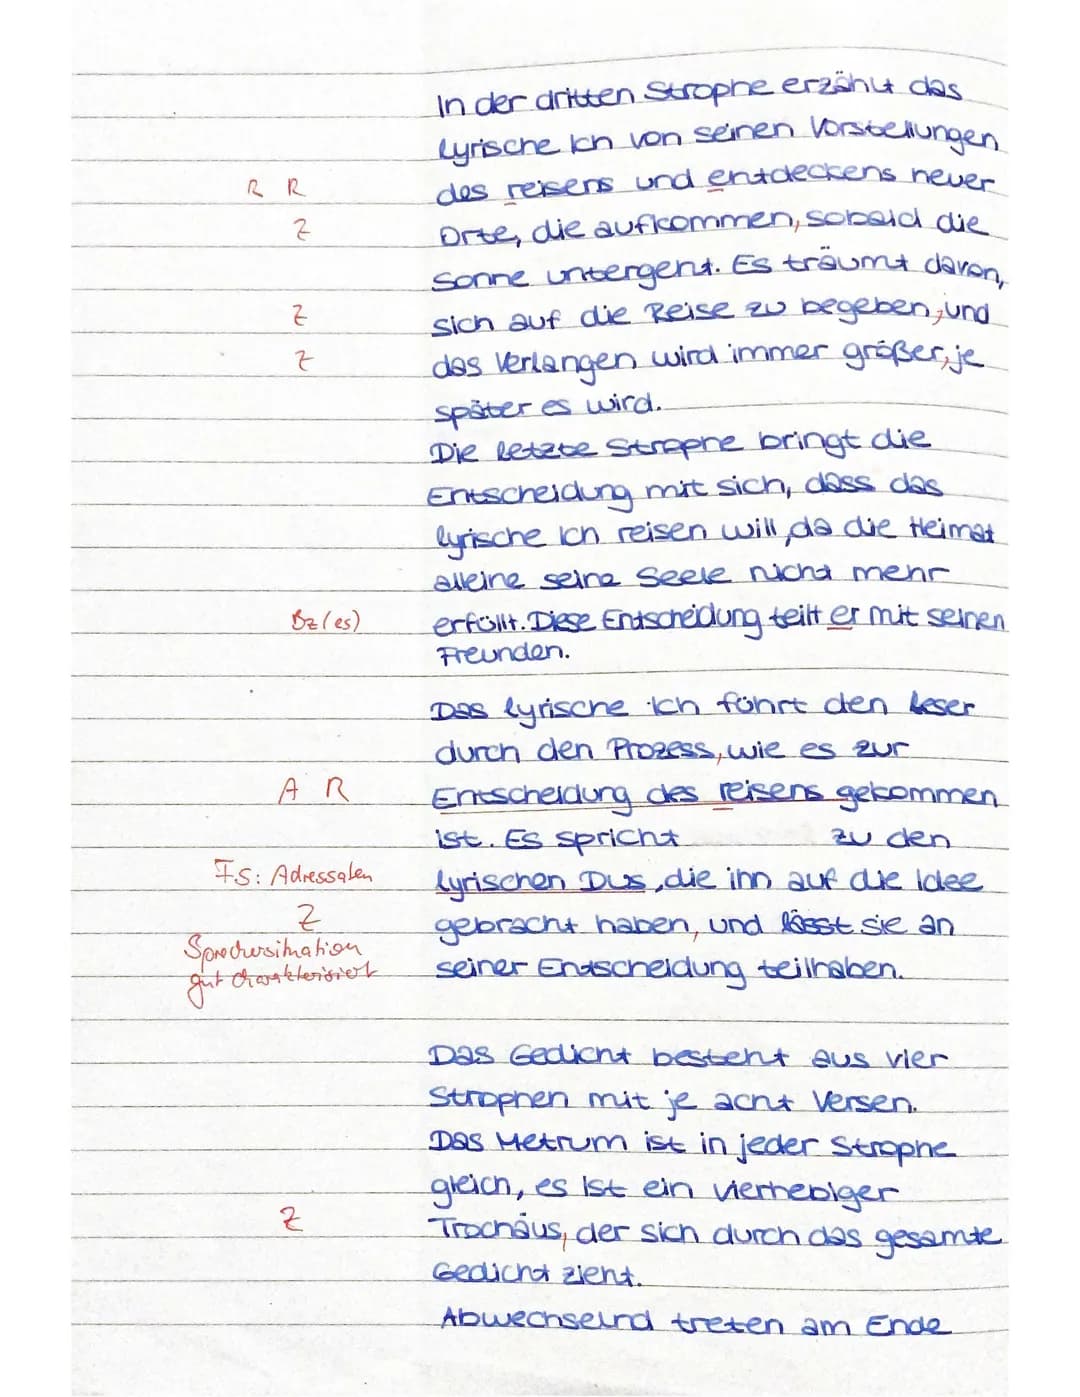 In der dritten Strophe erzählt das
lyrische Ich von seinen Vorstellungen
R R des reisens und entdeckens neuer
Z Orte, die aufkommen, sobald die
Sonne untergeht. Es träumt davon,
Z sich auf die Reise zu begeben, und
Z das Verlangen wird immer größer, je
später es wird.
Die letzte Strophe bringt die
Entscheidung mit sich, dass das
lyrische Ich reisen will, da die Heimat
alleine seine Seele nicht mehr
Bz (es) erfüllt. Diese Entscheidung teilt er mit seinen
Freunden.
Das lyrische Ich führt den Leser
durch den Prozess, wie es zur
A R Entscheidung des reisens gekommen
ist. Es spricht zu den
FS: Adressaten lyrischen Dus, die ihn auf die Idee
Z gebracht haben, und lässt sie an
Sprechersituation
gut charakterisiert seiner Entscheidung teilhaben.
Das Gedicht besteht aus vier
Strophen mit je acht Versen.
Das Metrum ist in jeder Strophe
gleich, es ist ein vierhebiger
Z Trochäus, der sich durch das gesamte
Gedicht zieht.
Abwechselnd treten am Ende